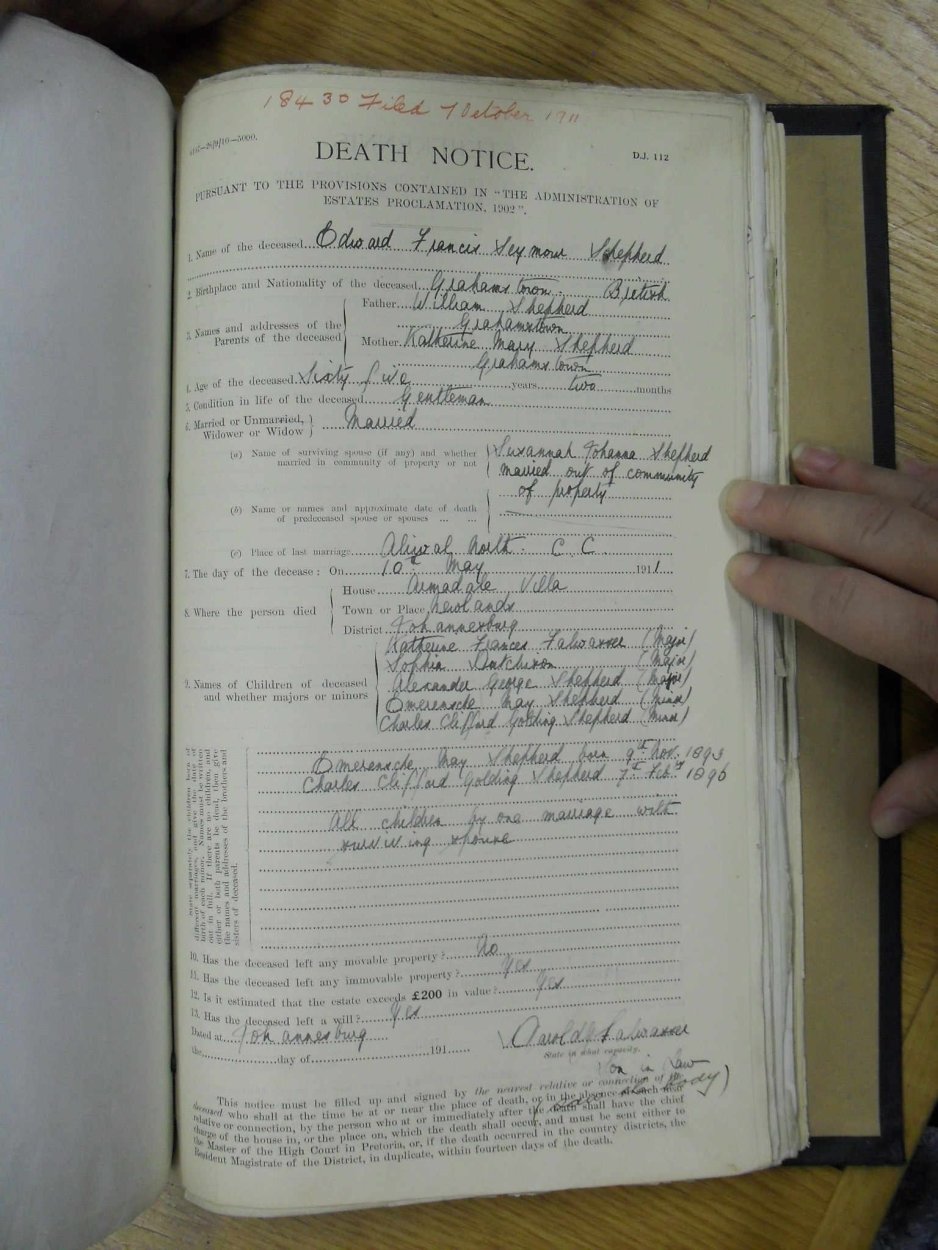 18430 Filed 7 October 1911
28/9/10—5000.
DEATH NOTICE.
D.J. 112
PURSUANT TO THE PROVISIONS CONTAINED IN "THE ADMINISTRATION OF
ESTATES PROCLAMATION, 1902".
1. Name of the deceased Edward Francis Seymour Shepherd
2. Birthplace and Nationality of the deceased Grahamstown. British
3. Names and addresses of the Parents of the deceased
Father William Shepherd
Grahamstown
Mother Katherine Mary Shepherd
Grahamstown
4. Age of the deceased Sixty five years two months
5. Condition in life of the deceased Gentleman
6. Married or Unmarried, Widower or Widow Married
(a) Name of surviving spouse (if any) and whether married in community of property or not
Susannah Johanna Shepherd
married out of community
of property
(b) Name or names and approximate date of death of predeceased spouse or spouses ... ...
(c) Place of last marriage Aliwal North. C. C.
7. The day of the decease: On 10th May 1911.
8. Where the person died
House Armadale Villa
Town or Place Newlands
District Johannesburg
9. Names of Children of deceased and whether majors or minors
Katherine Frances (Major)
Sophia (Major)
Alexander George Shepherd (Major)
Emerensche May Shepherd (Minor)
Charles Clifford Golding Shepherd (Minor)
State separately the children born of
different marriages, and give the date of
birth of each minor. Names must be written
out in full. If there are no children, and
either or both parents be dead, then give
the names and addresses of the brothers and
sisters of deceased.
Emerensche May Shepherd born 9th Nov. 1893
Charles Clifford Golding Shepherd 7th Feby 1896
All children by one marriage with
surviving spouse
10. Has the deceased left any movable property? No
11. Has the deceased left any immovable property? Yes
12. Is it estimated that the estate exceeds £200 in value? Yes
13. Has the deceased left a will? Yes
Dated at Johannesburg
the day of 191
State in what capacity.
Son in Law
body)
This notice must be filled up and signed by the nearest relative or connection of the
deceased who shall at the time be at or near the place of death, or in the absence of such near
relative or connection, by the person who at or immediately after the death shall have the chief
charge of the house in, or the place on, which the death shall occur, and must be sent either to
the Master of the High Court in Pretoria, or, if the death occurred in the country districts, the
Resident Magistrate of the District, in duplicate, within fourteen days of the death.